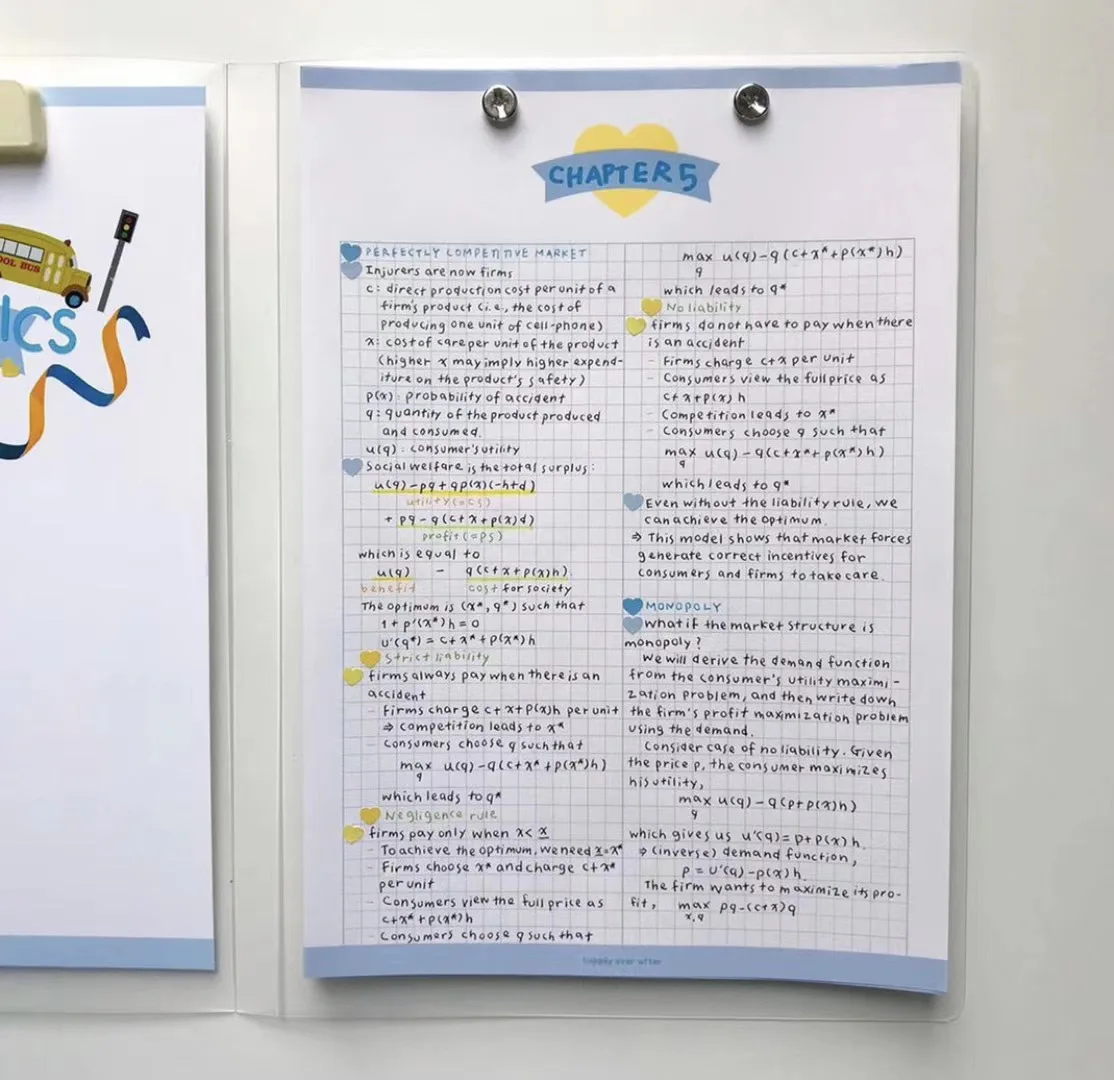 OOL BUS
ICS
CHAPTER 5
PERFECTLY COMPETITIVE MARKET
Injurers are now firms
c: direct production cost per unit of a
firm's product (i.e., the cost of
producing one unit of cell-phone)
x: cost of care per unit of the product
(higher x may imply higher expend-
iture on the product's safety)
p(x): probability of accident
q: quantity of the product produced
and consumed.
u(q): consumer's utility
Social welfare is the total surplus:
u(q)-pq+qp(x)(-h+d)
utility(=cs)
+ pq-q(c+x+p(x)d)
profit(=ps)
which is equal to
u(q) - q(c+x+p(x)h).
benefit cost for society
The optimum is (x*, q*) such that
1+p'(x*)h=0
u'(q*)=c+x*+p(x*)h
Strict liability
firms always pay when there is an
accident
- Firms charge c+x+p(x)h per unit
⇒ competition leads to x*
- Consumers choose q such that
max u(q)-q(c+x*+p(x*)h)
q
which leads to q*
Negligence rule
firms pay only when x< x
- To achieve the optimum, we need x=x*
- Firms choose x* and charge c+x*
per unit
- Consumers view the full price as
c+x*+p(x*)h
- Consumers choose q such that
max u(q)-q(c+x*+p(x*)h)
q
which leads to q*
No liability
firms do not have to pay when there
is an accident
- Firms charge c+x per unit
- Consumers view the full price as
c+x+p(x)h
- Competition leads to x*
- Consumers choose q such that
max u(q)-q(c+x*+p(x*)h)
q
which leads to q*
Even without the liability rule, we
can achieve the optimum.
⇒ This model shows that market forces
generate correct incentives for
consumers and firms to take care.
MONOPOLY
What if the market structure is
monopoly?
We will derive the demand function
from the consumer's utility maximi-
zation problem, and then write down
the firm's profit maximization problem
using the demand.
Consider case of no liability. Given
the price p, the consumer maximizes
his utility,
max u(q)-q(p+p(x)h)
q
which gives us u'(q)=p+p(x)h.
⇒ (inverse) demand function,
p=u'(q)-p(x)h.
The firm wants to maximize its pro-
fit, max pq-(c+x)q
x,q
happily ever after